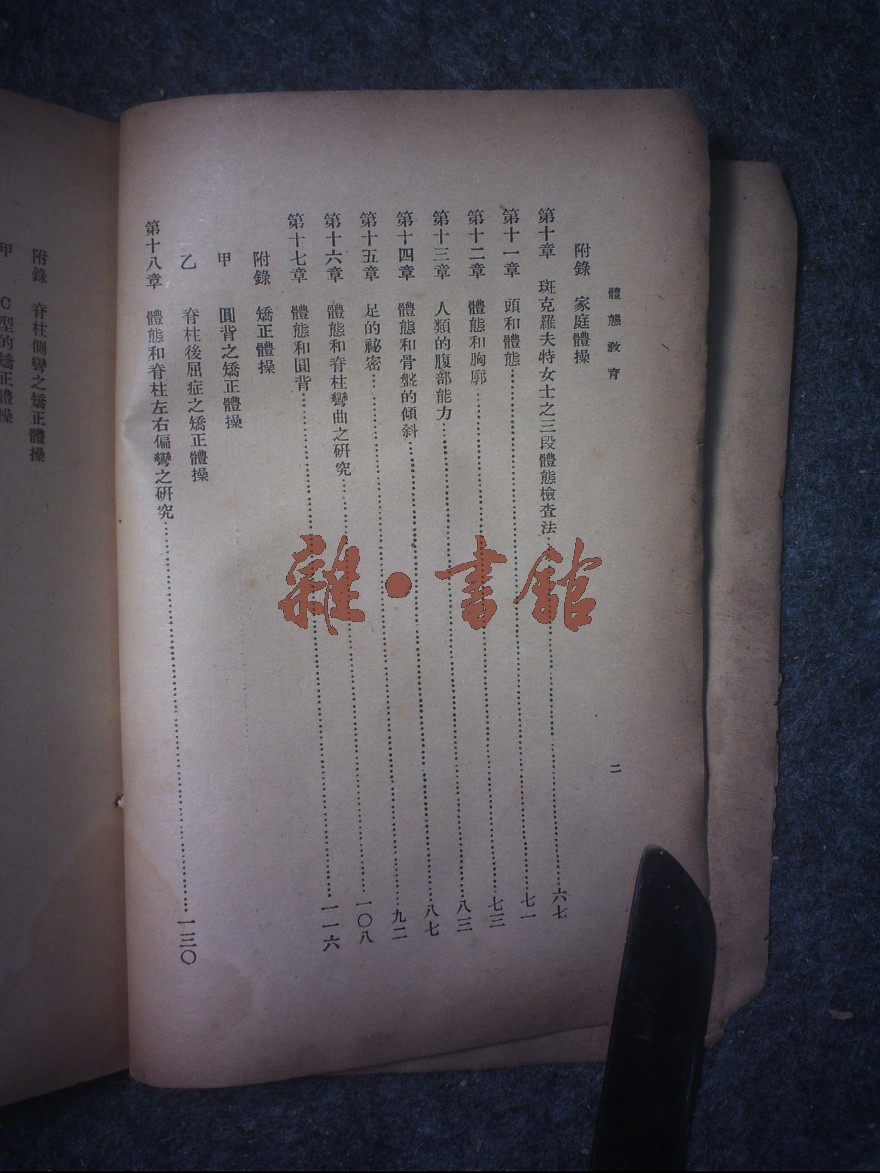 體態教育
二
附錄 家庭體操
第十章 斑克羅夫特女士之三段體態檢查法……六七
第十一章 頭和體態……七一
第十二章 體態和胸廓……七三
第十三章 人類的腹部能力……八三
第十四章 體態和骨盤的傾斜……八七
第十五章 足的祕密……九二
第十六章 體態和脊柱彎曲之研究……一〇八
第十七章 體態和圓背……一一六
附錄 矯正體操
甲 圓背之矯正體操
乙 脊柱後屈症之矯正體操
第十八章 體態和脊柱左右偏彎之研究……一三〇
附錄 脊柱側彎之矯正體操
甲 C型的矯正體操
雜·書館